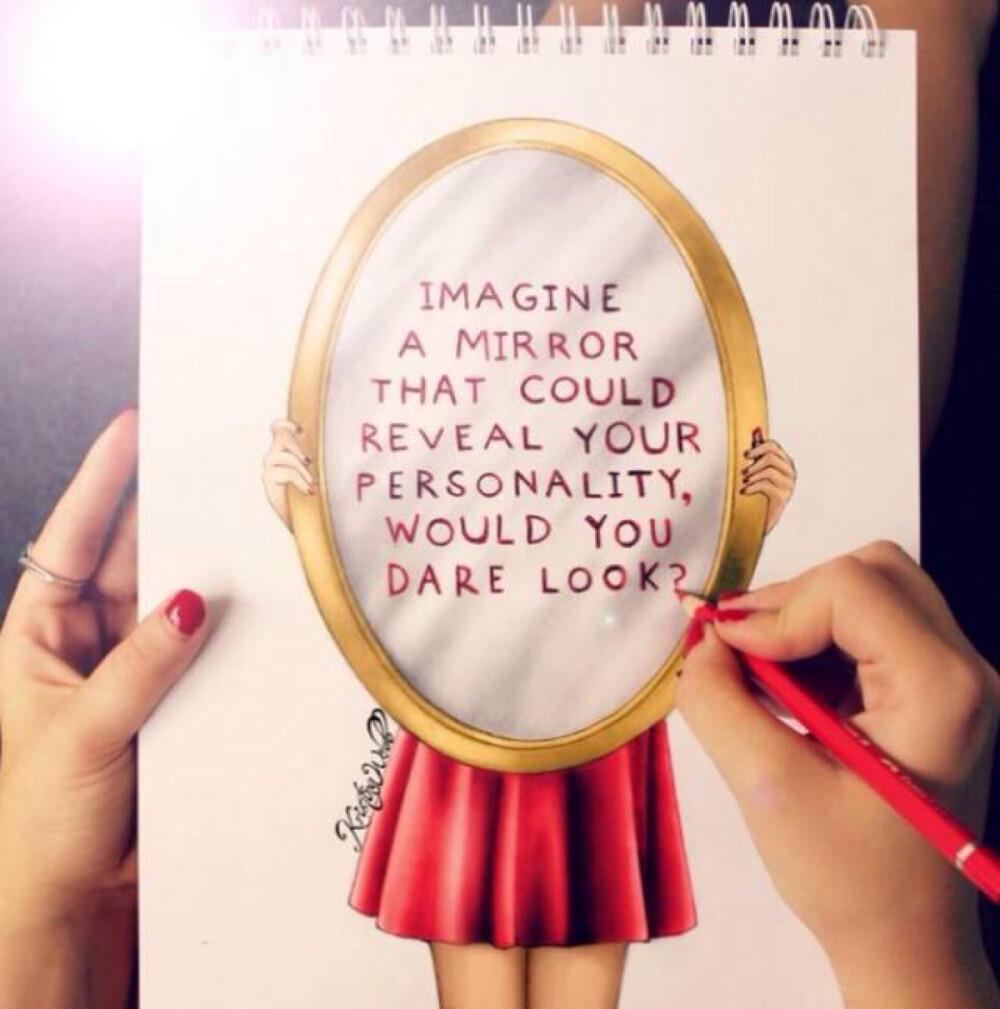 IMAGINE
A MIRROR
THAT COULD
REVEAL YOUR
PERSONALITY,
WOULD YOU
DARE LOOK?
Kristina Webb